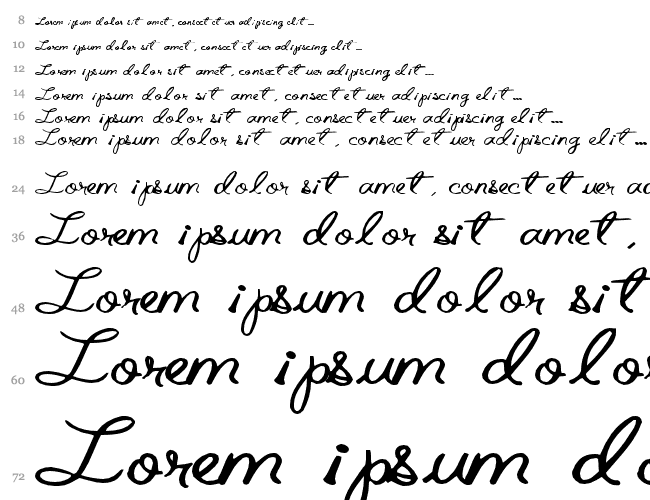 8 Lorem ipsum dolor sit amet, consect et uer adipiscing elit...
10 Lorem ipsum dolor sit amet, consect et uer adipiscing elit...
12 Lorem ipsum dolor sit amet, consect et uer adipiscing elit...
14 Lorem ipsum dolor sit amet, consect et uer adipiscing elit...
16 Lorem ipsum dolor sit amet, consect et uer adipiscing elit...
18 Lorem ipsum dolor sit amet, consect et uer adipiscing elit...
24 Lorem ipsum dolor sit amet, consect et uer ad
36 Lorem ipsum dolor sit amet,
48 Lorem ipsum dolor sit
60 Lorem ipsum dolo
72 Lorem ipsum do